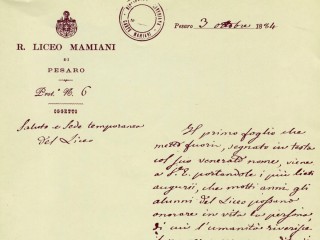 Pesaro 3 ottobre 1884
R. LICEO MAMIANI
DI
PESARO
Prot.° N. 6
OGGETTO
Saluto e Sede temporanea
del Liceo
Il primo foglio che
metto fuori, segnato in testa
col suo venerato nome, viene
a V.E. portandole i più lieti
augurii, che molti anni gli
alunni del Liceo possano
onorare in vita la persona
di cui l'umanità riverisce